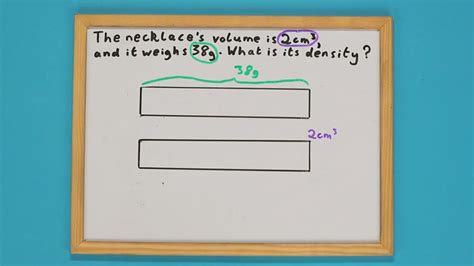 The necklace's volume is 2cm³,
and it weighs 38g. What is its density?
38g
2cm³